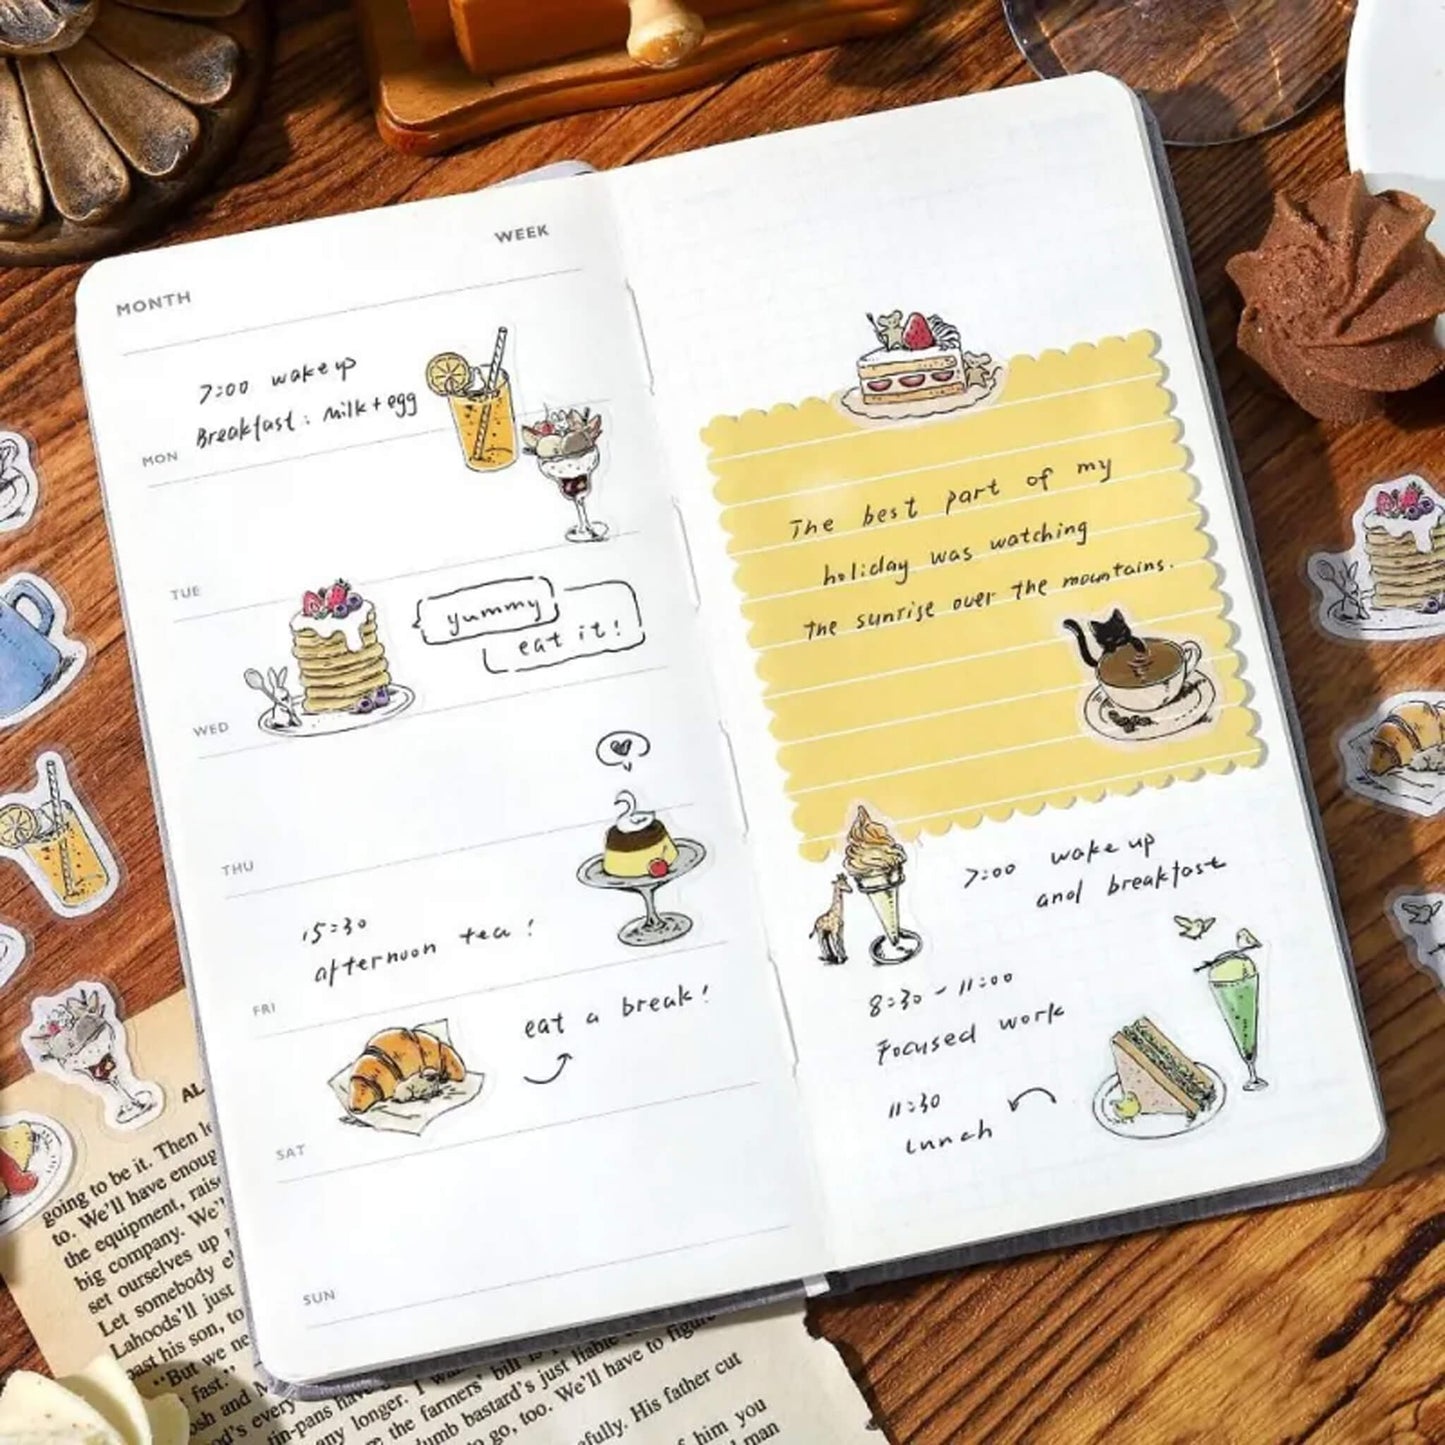 MONTH
WEEK
7:00 wake up
Breakfast: milk + egg
MON
TUE
yummy
eat it!
WED
THU
15:30
afternoon tea!
FRI
eat a break!
SAT
SUN
The best part of my
holiday was watching
the sunrise over the mountains.
7:00 wake up
and breakfast
8:30 - 11:00
Focused work
11:30
Lunch
going to be it. Then
to. We'll have enoug
the equipment, rais
big company. We'
set ourselves up
Let somebody
Lahoods'll just
his son, to
"But we ne
fast."
and
any longer. I
the farmers' bill is
bastard's just liable
go, too. We'll have to figure
His father cut
him you
man